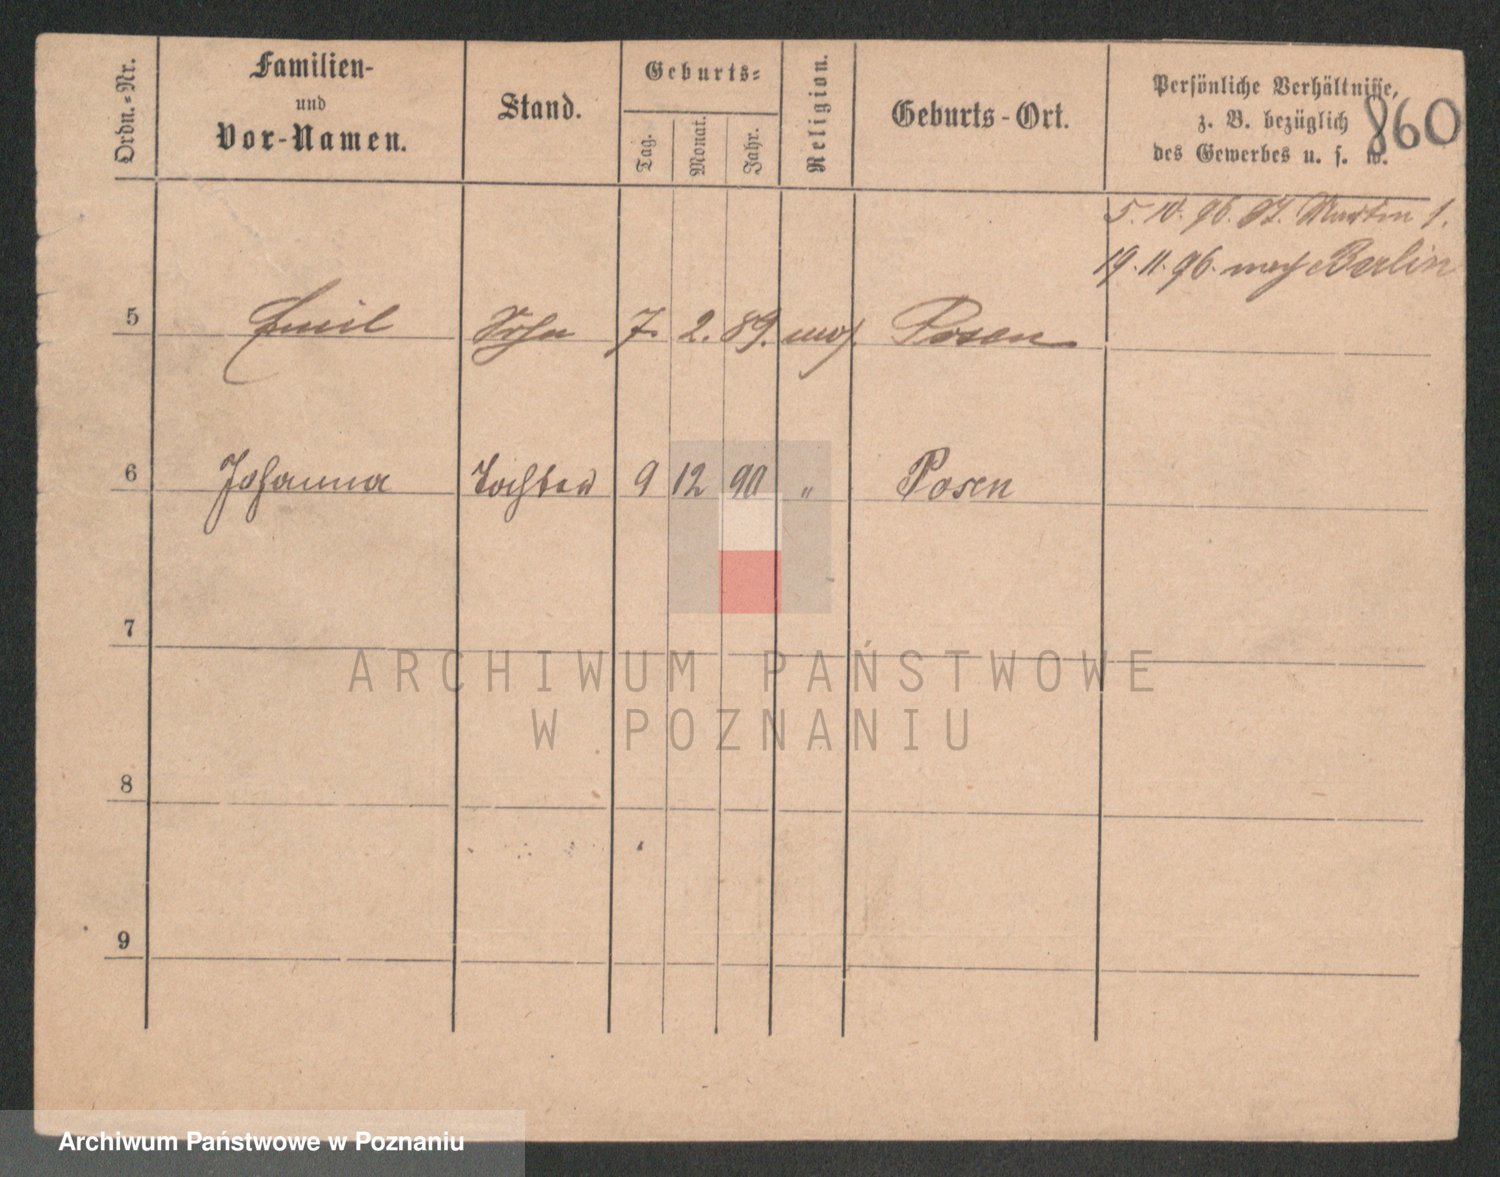 Ordn.-Nr.
Familien-
und
Vor-Namen.
Stand.
Geburts-
Tag.
Monat.
Jahr.
Religion.
Geburts-Ort.
Persönliche Verhältnisse,
z. B. bezüglich
des Gewerbes u. s. w.
860
5. 10. 96. St. Martin 1.
19. 11. 96. nach Berlin
5 Emil Sohn 7. 2. 89. mos. Posen
6 Johanna Tochter 9 12 90 " Posen
7
8
9
ARCHIWUM PAŃSTWOWE
W POZNANIU
Archiwum Państwowe w Poznaniu